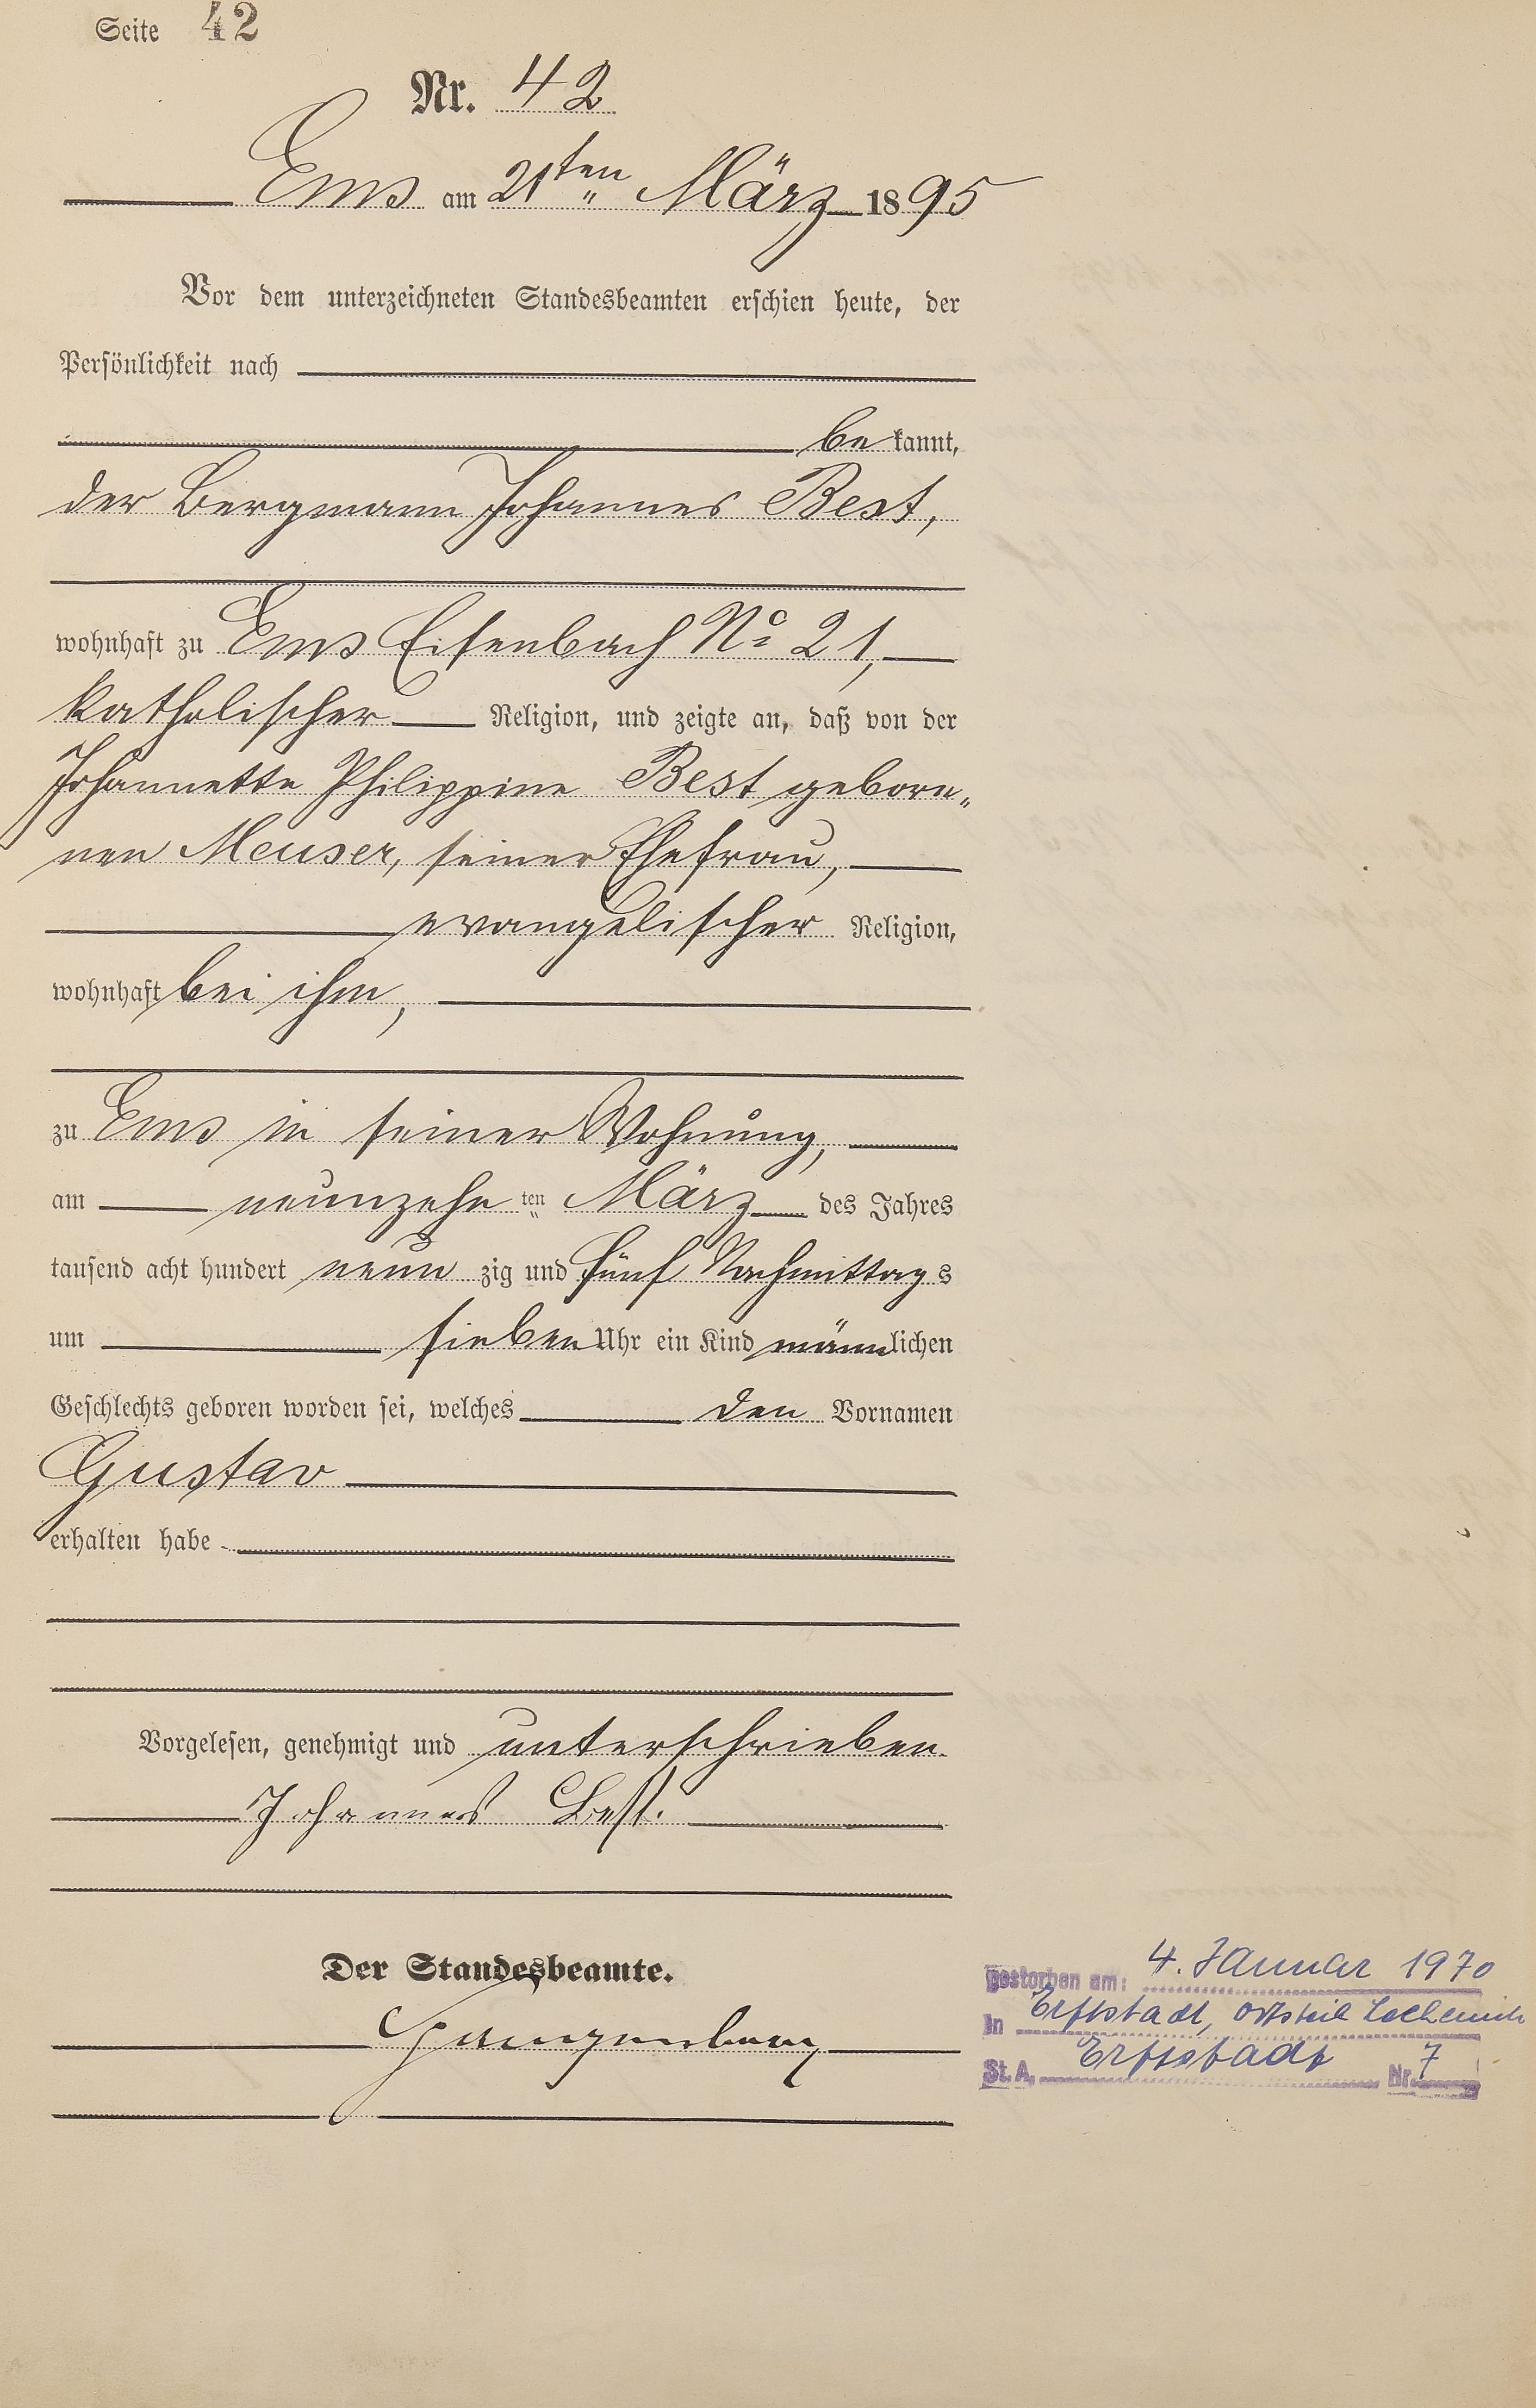 Seite 42
Nr. 42
Ems am 21ten März 1895
Vor dem unterzeichneten Standesbeamten erschien heute, der
Persönlichkeit nach
be kannt,
der Bergmann Johannes Best,
wohnhaft zu Ems Eisenbach No 21,
katholischer Religion, und zeigte an, daß von der
Johannette Philippine Best gebore„
nen Meuser, seiner Ehefrau,
evangelischer Religion,
wohnhaft bei ihm,
zu Ems in seiner Wohnung,
am neunzehn ten März des Jahres
tausend acht hundert neun zig und fünf Nachmittags
um sieben Uhr ein Kind männlichen
Geschlechts geboren worden sei, welches den Vornamen
Gustav
erhalten habe
Vorgelesen, genehmigt und unterschrieben.
Johannes Best.
Der Standesbeamte.
gestorben am: 4. Januar 1970
in Erftstadt, Ortsteil Lechenich
St. A. Erftstadt Nr. 7